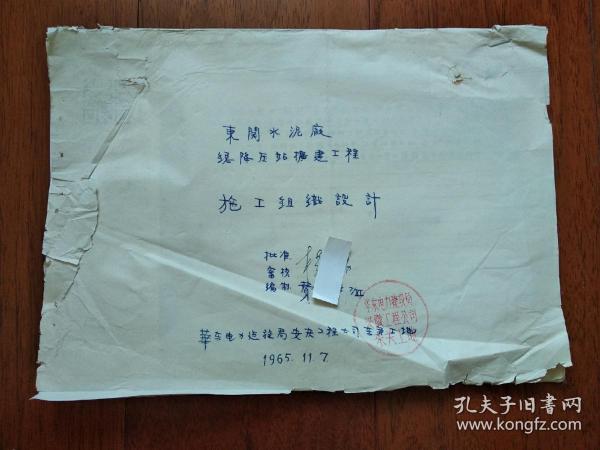 東関水泥廠
總降压站擴建工程
施工組織設計
批准
審核
編制 蔡 江
華东电力建設局安裝工程公司 工地
1965.11.7.
华东电力建設局
工程公司
工地
孔夫子旧書网
www.kongfz.com